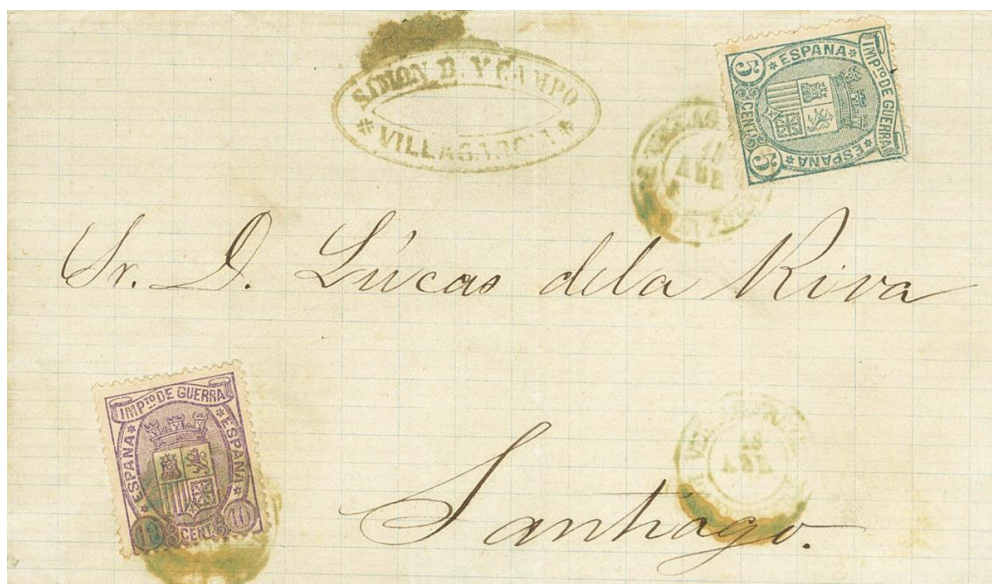 SIMON B. Y CAMPO
* VILLAGARCIA *
ESPAÑA * IMPTO DE GUERRA * ESPAÑA *
5 CENT. 5
ABR
Sr. D. Lúcas dela Riva
IMPTO DE GUERRA
ESPAÑA * ESPAÑA *
10 CENT. 10
ABR
Santiago.